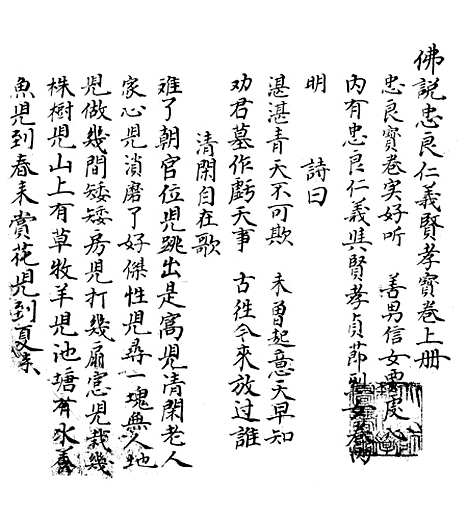 佛説忠良仁義賢孝寳卷上册
忠良寳卷实好听 善男信女要虔心
内有忠良仁義共賢孝貞莭烈女卷内
明 詩曰
湛湛青天不可欺 未曾起意天早知
劝君莫作虧天事 古往今來放过誰
清閑自在歌
难了朝官位児跳出是窩児清閑老人
家心児消磨了好傑性児尋一塊無人地
児做幾間矮矮房児打幾扇窓児栽幾
株樹児山上有草牧羊児池塘有水養
魚児到春来賞花児到夏来